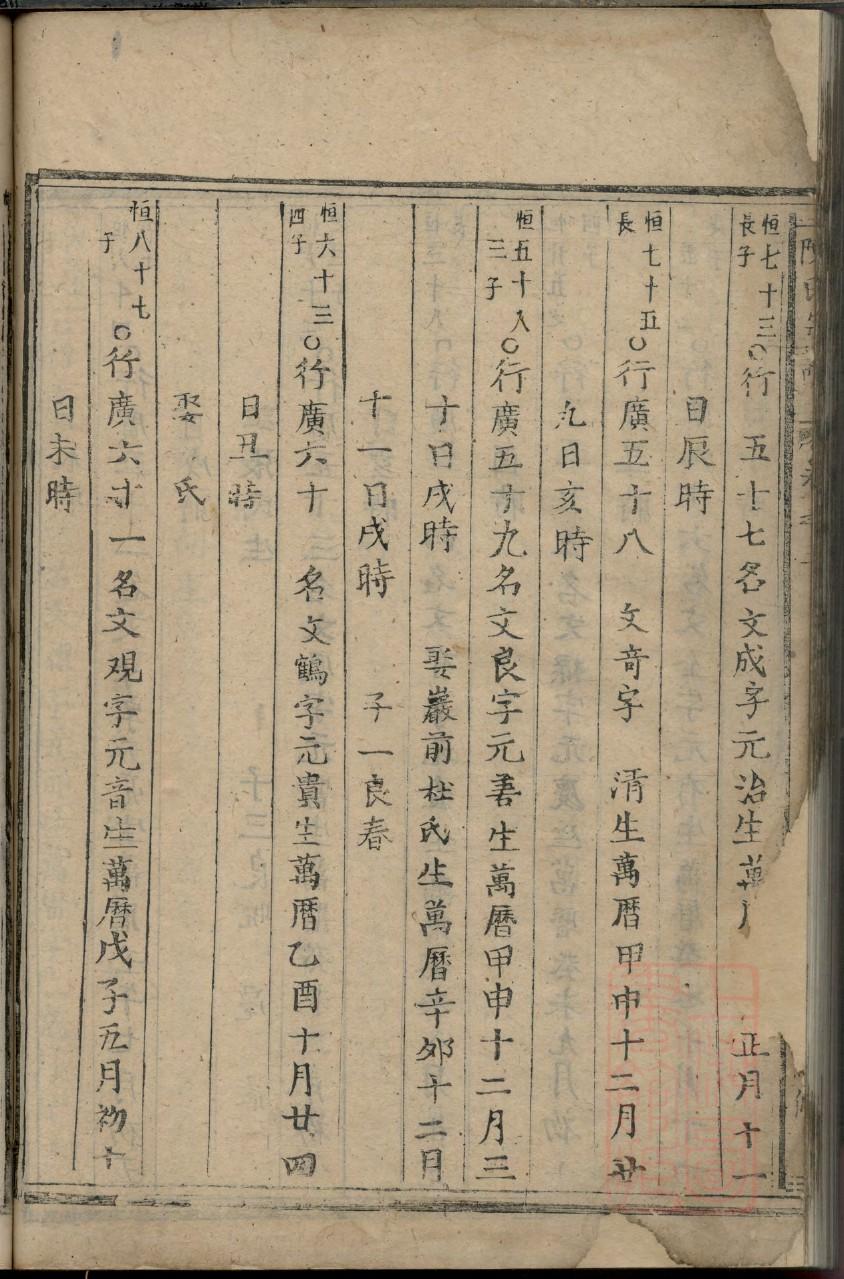 恒七十三長子○行 五十七名文成字元治生萬 正月十一
日辰時
恒七十五長○行廣五十八 文奇字 清生萬曆甲申十二月廿
九日亥時
恒五十八三子○行廣五十九名文良字元善生萬曆甲申十二月三
十日戌時 娶巖前杜氏生萬曆辛卯十二月
十一日戌時 子一良春
恒六十三四子○行廣六十 名文鶴字元貴生萬曆乙酉十月廿四
日丑時
娶 氏
恒八十七子○行廣六十一名文观字元音生萬曆戊子五月初十
日未時